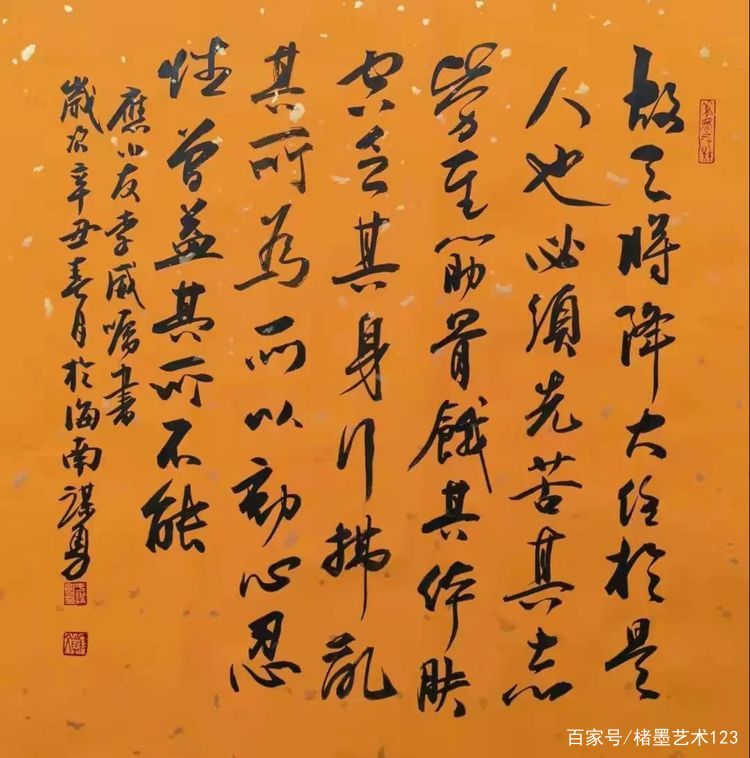 故天將降大任於是
人也必須先苦其志
劳至筋骨餓其体肤
空乏其身行拂乱
其所为所以動心忍
性曾益其所不能
應小友李威嘱書
歲次辛丑春月於海南謀勇
百家号/楮墨艺术123